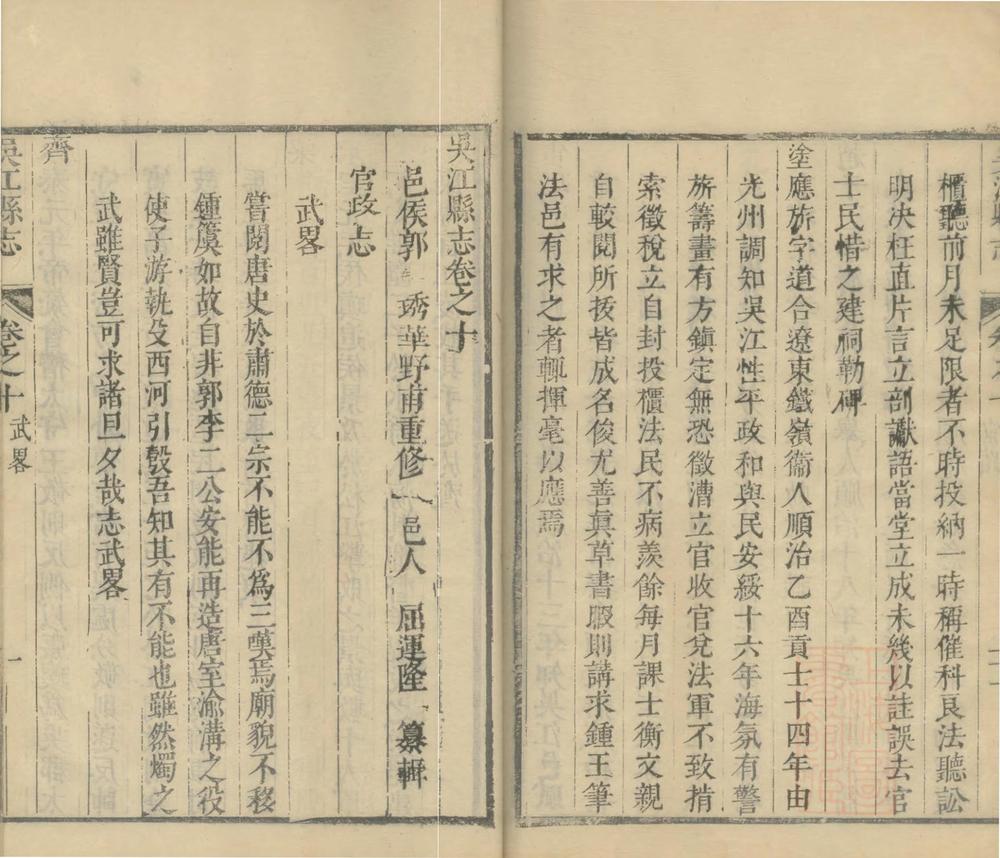 櫃聽前月未足限者不時投納一時稱催科良法聽訟
明决枉直片言立剖讞語當堂立成未幾以註誤去官
士民惜之建祠勒碑
塗應旂字道合遼東鐵嶺衞人順治乙酉貢士十四年由
光州調知吳江性平政和與民安綏十六年海氛有警
旂籌畫有方鎮定無恐徵漕立官收官兌法軍不致掯
索徵稅立自封投櫃法民不病羨餘每月課士衡文親
自較閱所拔皆成名俊尤善眞草書暇則講求鍾王筆
法邑有求之者輒揮毫以應焉
吳江縣志卷之十
邑侯郭琇華野甫重修 邑人 屈運隆 纂輯
官政志
武畧
嘗閱唐史於肅德二宗不能不爲三嘆焉廟貌不移
鍾簴如故自非郭李二公安能再造唐室渝溝之役
使子游執殳西河引彀吾知其有不能也雖然燭之
武雖賢豈可求諸旦夕哉志武畧
齊
吳江縣志 卷之十 武畧 一